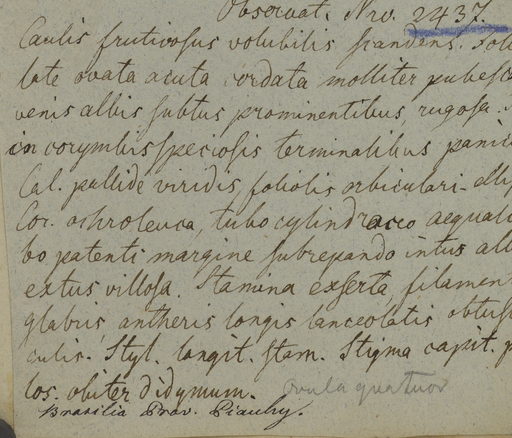 Observat. Nro. 2437.
Caulis fruticosus volubilis scandens. Foli
late ovata acuta cordata molliter pubesc
venis albis subtus prominentibus, rugosa.
in corymbis speciosis terminalibus panic
Cal. pallide viridis, foliolis orbiculari-elli
Cor. ochroleuca, tubo cylindraceo aequali
bo patenti margine subrepando intus alb
extus villosa. Stamina exserta, filament
glabris, antheris longis lanceolatis obtus
culis. Styl. longit. stam. Stigma capit. p
los. obiter didymum. ovula quatuor
Brasilia Prov. Piauhy.